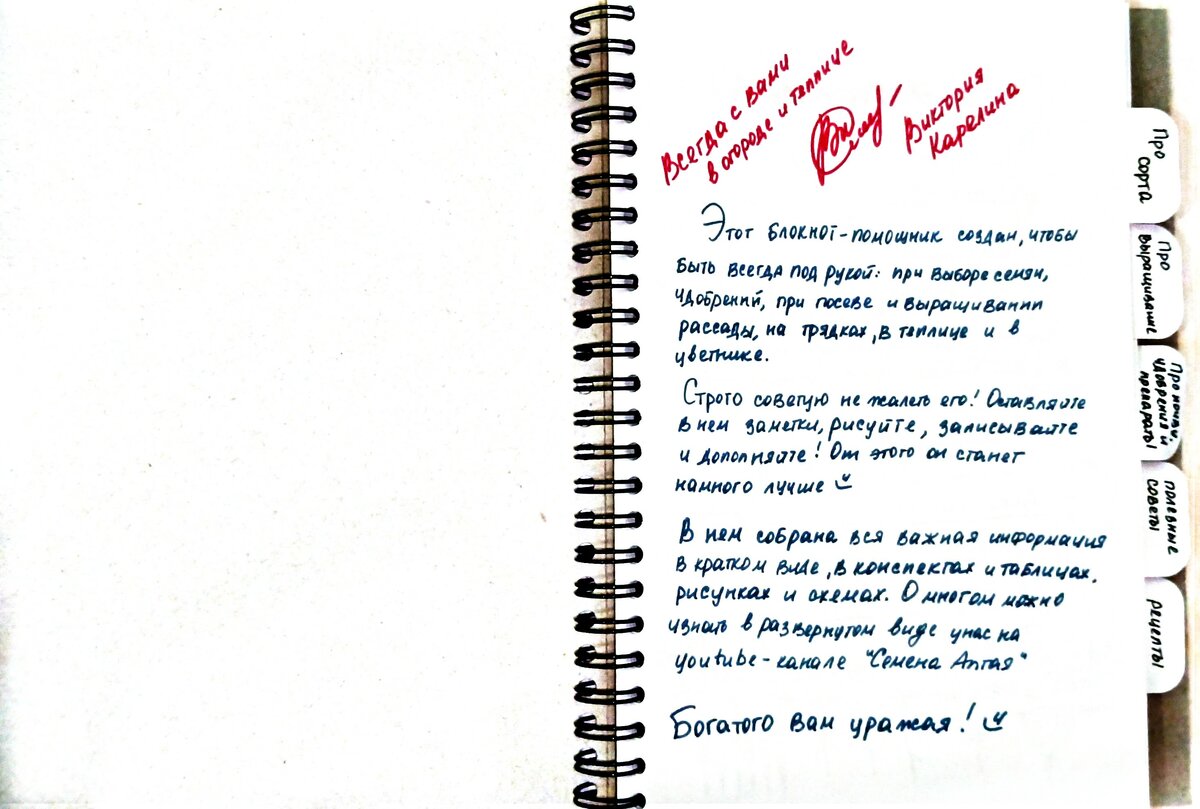 Всегда с вами
в огороде и теплице
Виктория
Карелина
Этот блокнот-помощник создан, чтобы
быть всегда под рукой: при выборе семян,
удобрений, при посеве и выращивании
рассады, на грядках, в теплице и в
цветнике.
Строго советую не жалеть его! Оставляйте
в нем заметки, рисуйте, записывайте
и дополняйте! От этого он станет
намного лучше
В нем собрана вся важная информация
в кратком виде, в конспектах и таблицах,
рисунках и схемах. О многом можно
узнать в развернутом виде у нас на
youtube-канале "Семена Алтая"
Богатого вам уражая!
Про
сорта
Про
выращивание
Про почву,
удобрения и
препараты
полезные
советы
рецепты